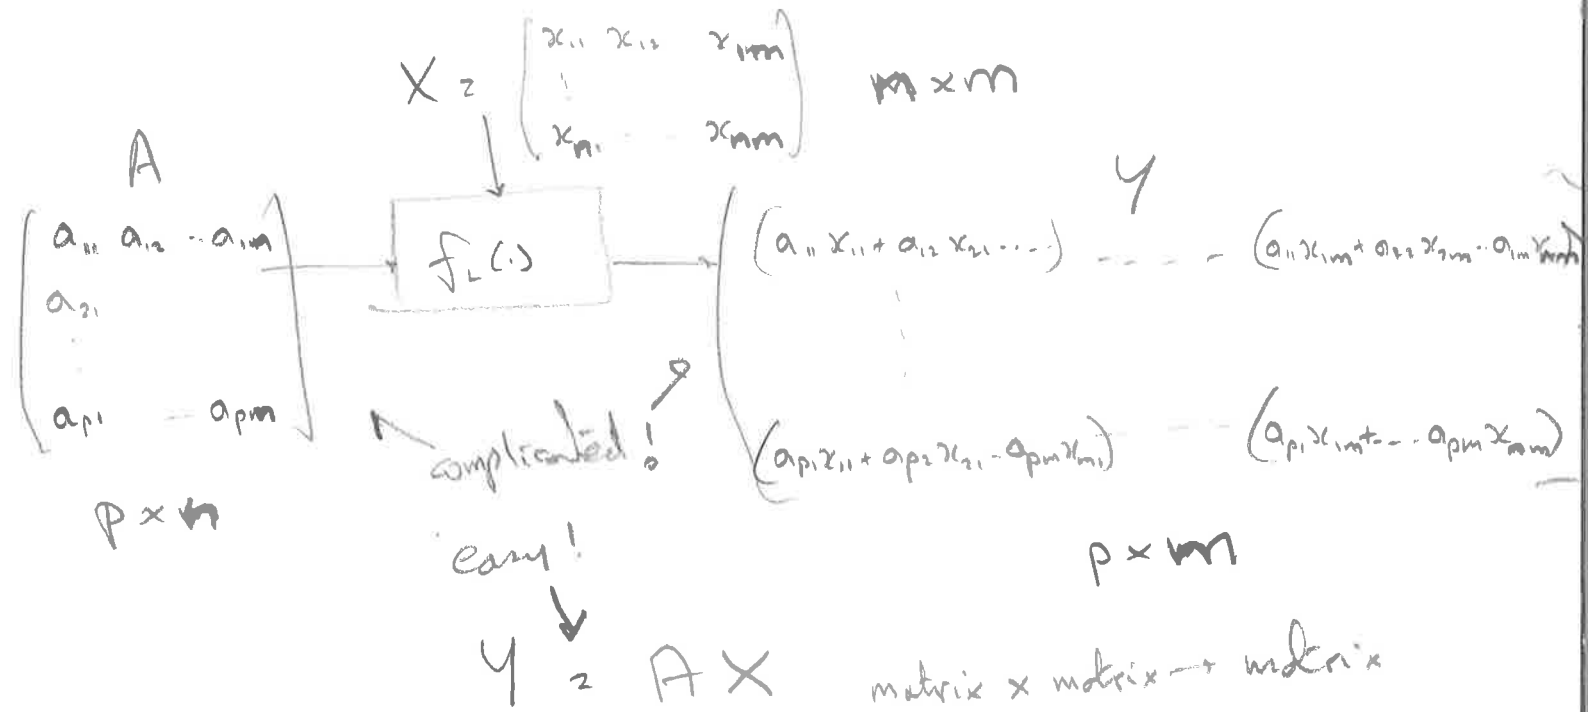 X = [ x₁₁ x₁₂ x₁ₘ
⋮
xₙ₁ ... xₙₘ ] n × m
A
[ a₁₁ a₁₂ ... a₁ₙ
a₂₁
⋮
aₚ₁ ... aₚₙ ]
p × n
f_L(.)
Y
(a₁₁x₁₁ + a₁₂x₂₁ ....) ---- (a₁₁x₁ₘ + a₂₂x₂ₘ .. a₁ₙxₙₘ)
(aₚ₁x₁₁ + aₚ₂x₂₁ .. aₚₙxₙ₁) ---- (aₚ₁x₁ₘ + .... aₚₙxₙₘ)
p × m
complicated!
easy!
Y = AX matrix × matrix → matrix